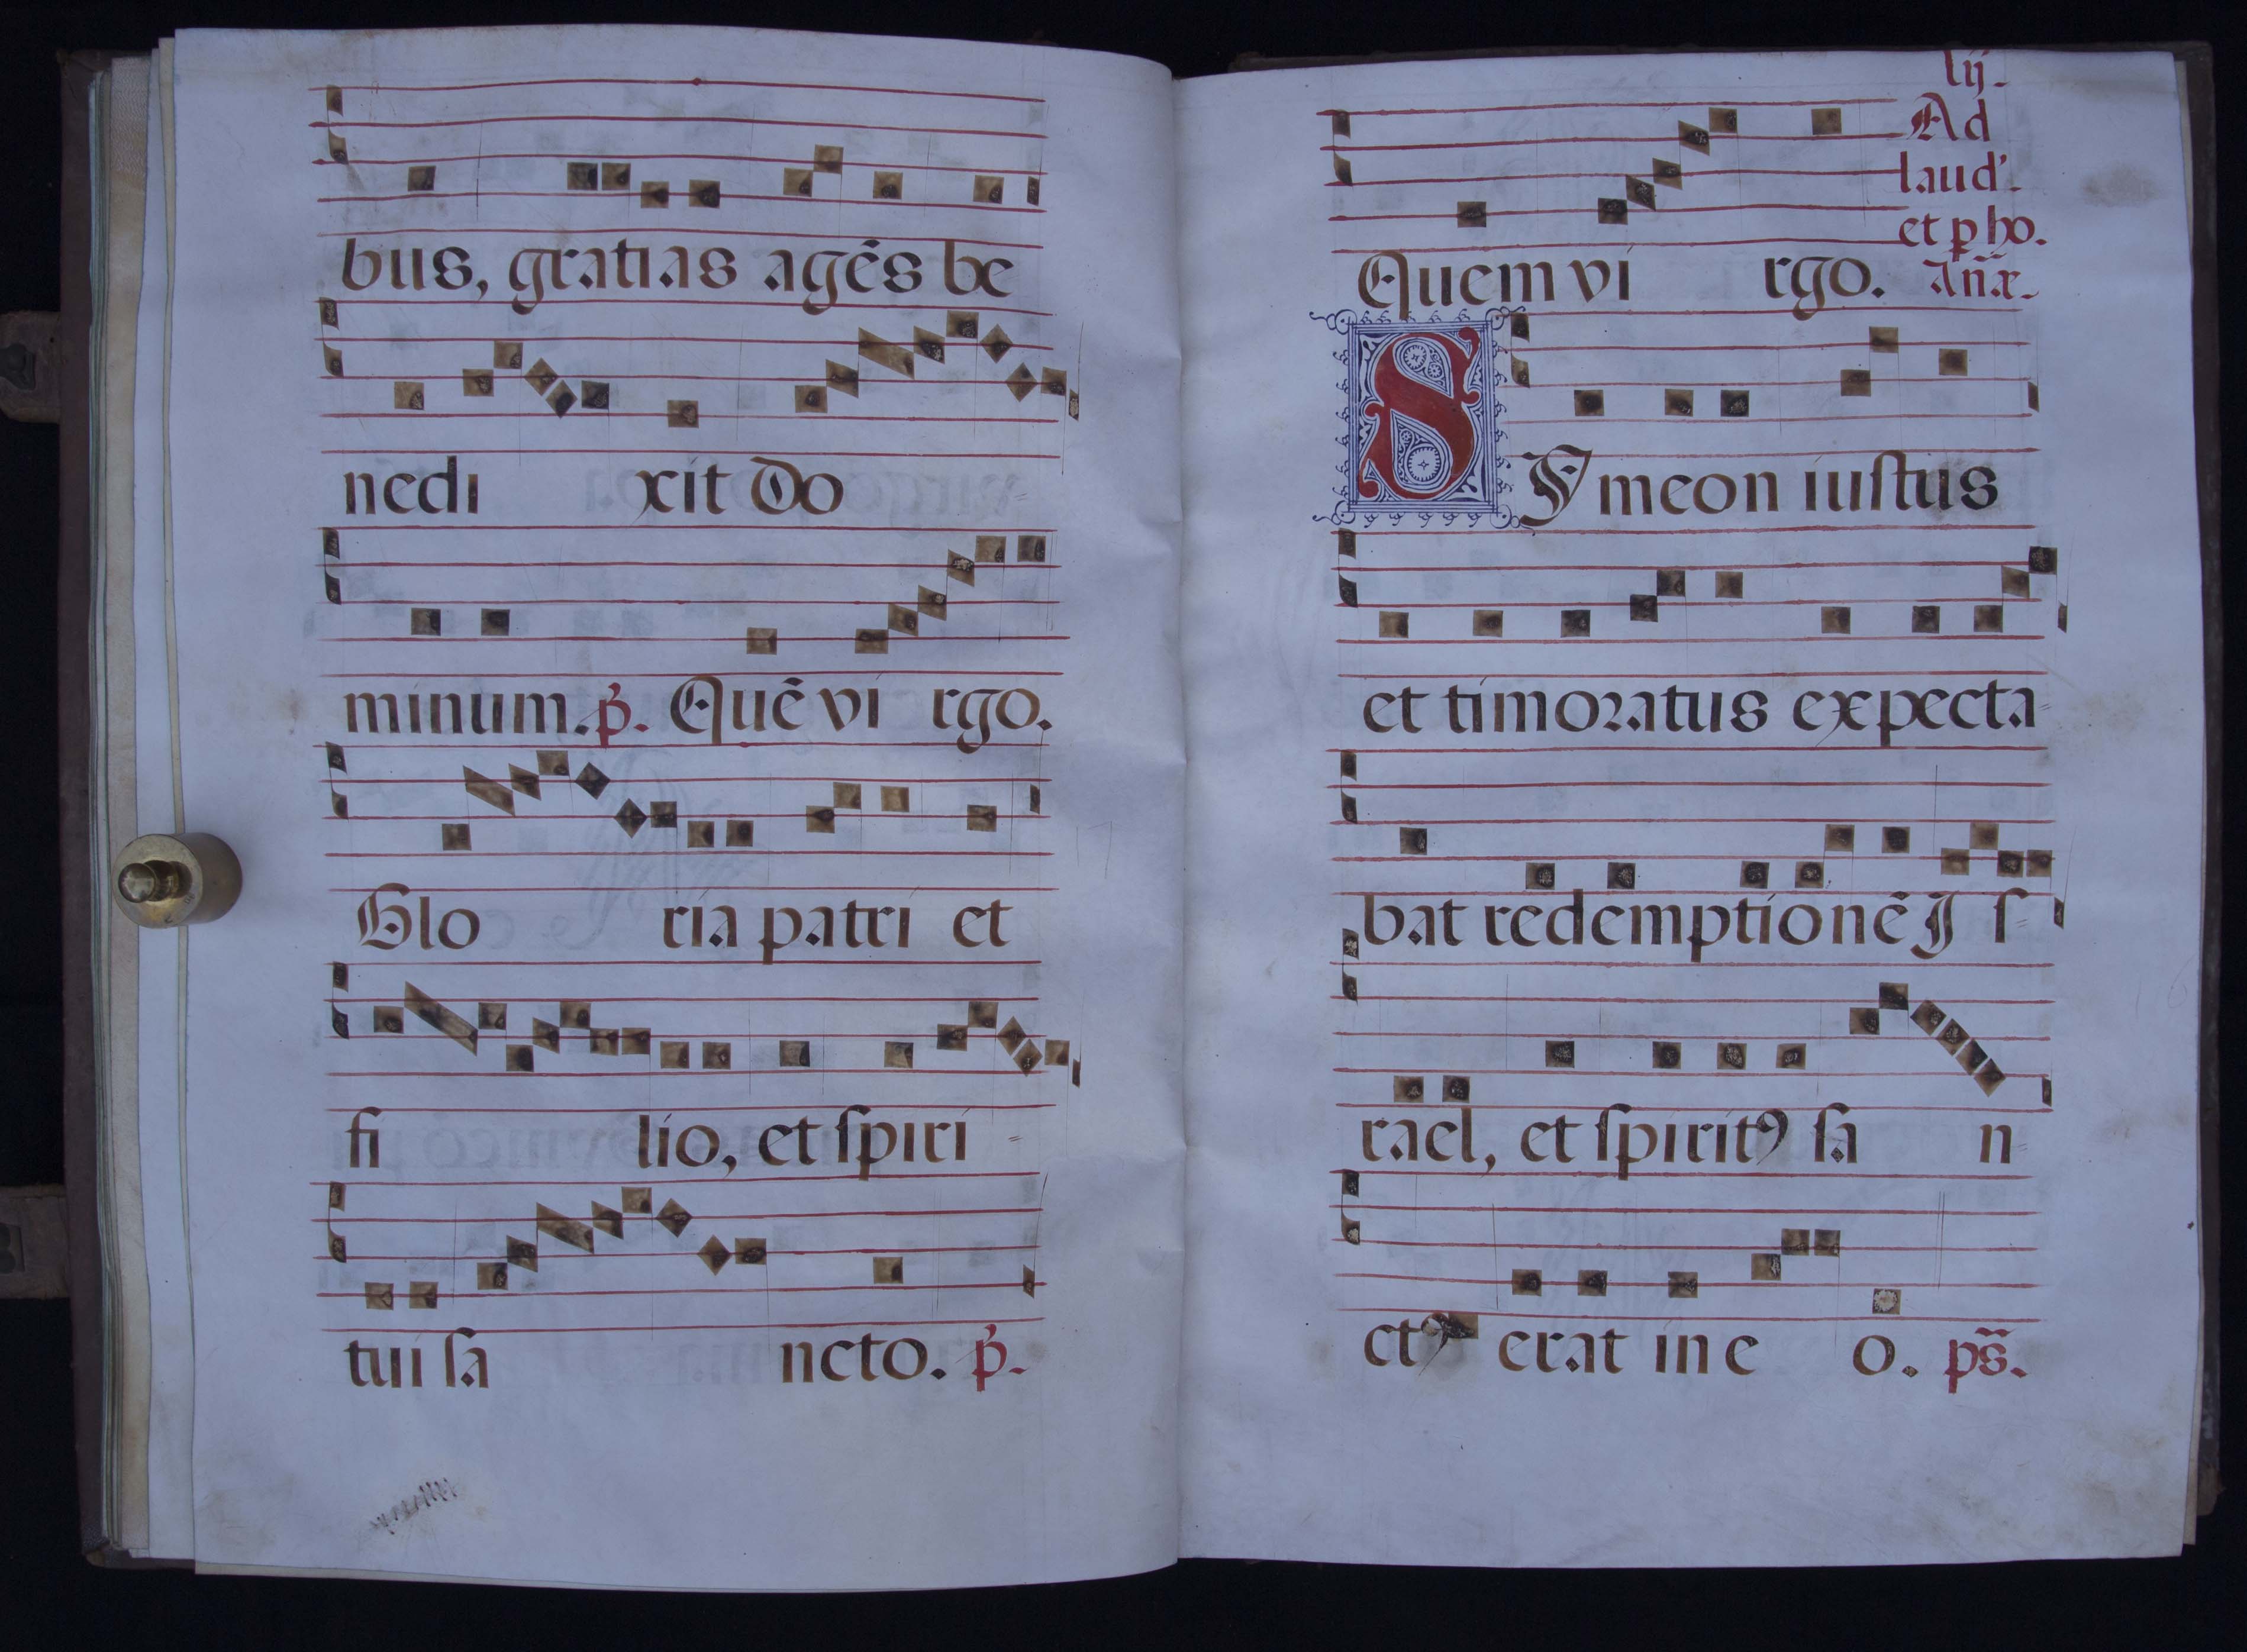 bus, gratias agẽs be
nedi xit Do
minum. p̃. Quẽ vi rgo.
Glo ria patri et
fi lio, et ſpiri =
tui ſa ncto. p̃.
lij.
Ad
laud'.
et p ho.
Quem vi rgo. Añæ.
SYmeon iuſtus
et timoꝛatus expecta=
bat redemptionẽ Iſ
rael, et ſpiritꝰ ſa n=
ctꝰ erat in e o. ps̃.